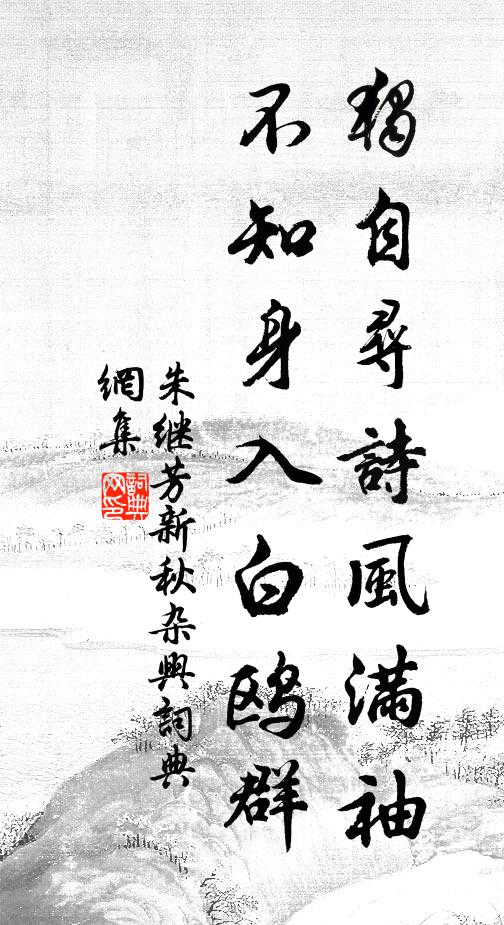 獨自尋詩風滿袖
不知身入白鸥群
朱继芳新秋杂興詞典
網集
詞典
网印